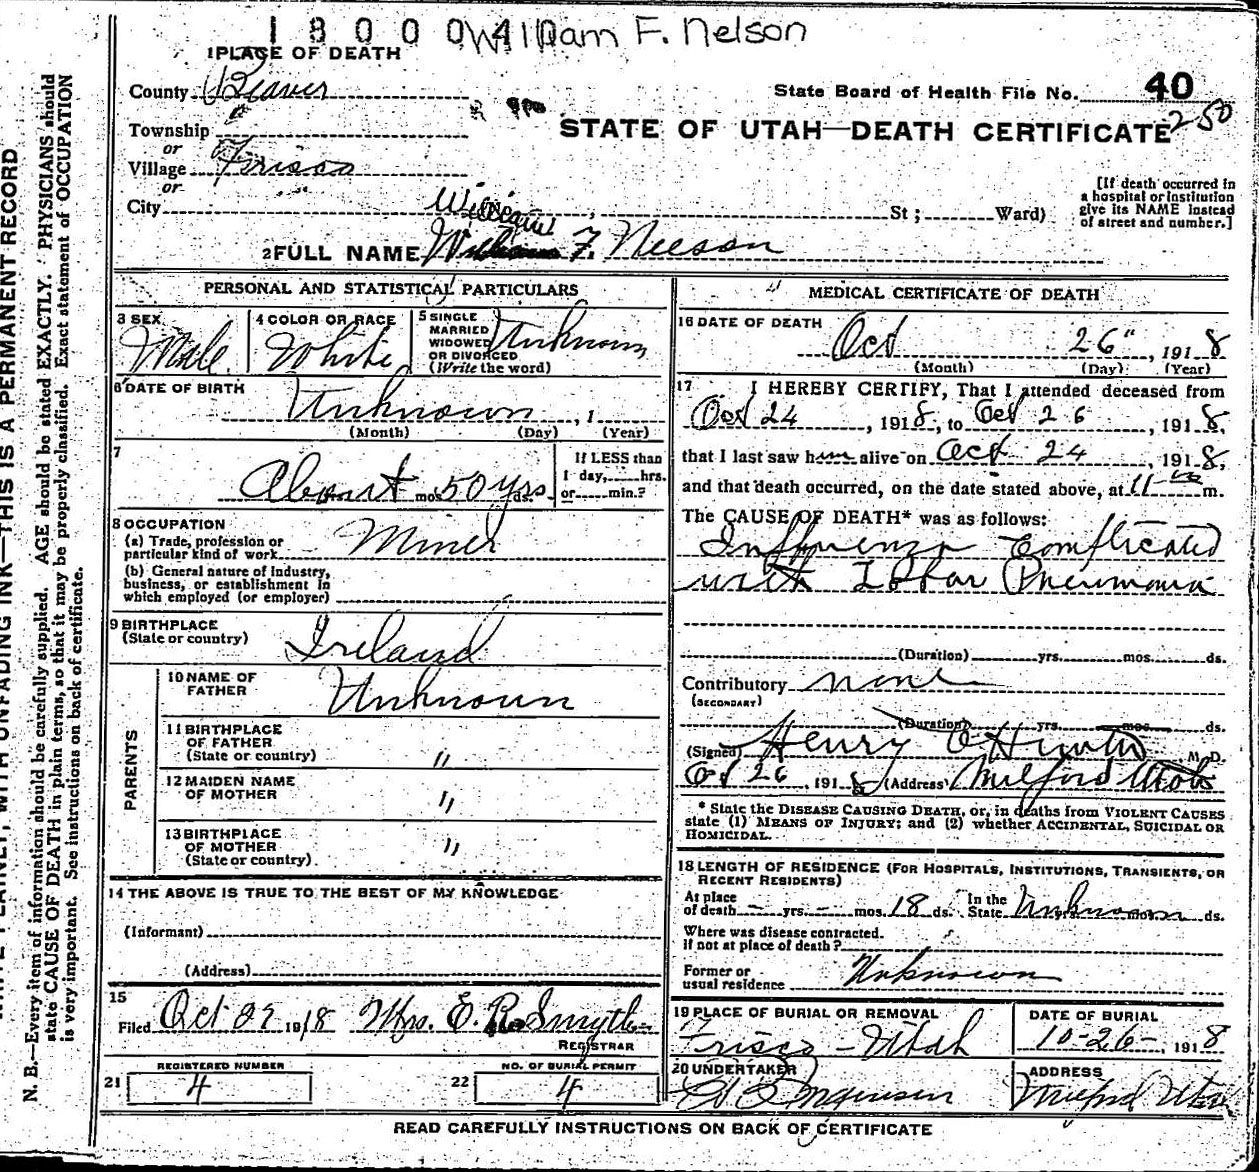 1800040 William F. Nelson
1 PLACE OF DEATH
County Beaver
State Board of Health File No. 40
Township
or
STATE OF UTAH—DEATH CERTIFICATE 250
Village Frisco
or
City St; Ward)
[If death occurred in
a hospital or institution
give its NAME instead
of street and number.]
William
2 FULL NAME William F. Nelson
PERSONAL AND STATISTICAL PARTICULARS
3 SEX Male
4 COLOR OR RACE White
5 SINGLE
MARRIED
WIDOWED
OR DIVORCED
(Write the word) Unknown
6 DATE OF BIRTH
Unknown, 1
(Month) (Day) (Year)
7
About mos 50 yrs ds.
If LESS than
1 day, hrs.
or min.?
8 OCCUPATION
(a) Trade, profession or
particular kind of work Miner
(b) General nature of industry,
business, or establishment in
which employed (or employer)
9 BIRTHPLACE
(State or country) Ireland
PARENTS
10 NAME OF
FATHER Unknown
11 BIRTHPLACE
OF FATHER
(State or country) "
12 MAIDEN NAME
OF MOTHER "
13 BIRTHPLACE
OF MOTHER
(State or country) "
14 THE ABOVE IS TRUE TO THE BEST OF MY KNOWLEDGE
(Informant)
(Address)
15
Filed Oct 27 1918 Mrs. E. R. Smyth
REGISTRAR
REGISTERED NUMBER
21 4
NO. OF BURIAL PERMIT
22 4
MEDICAL CERTIFICATE OF DEATH
16 DATE OF DEATH
Oct 26", 1918
(Month) (Day) (Year)
17 I HEREBY CERTIFY, That I attended deceased from
Oct 24, 1918, to Oct 26, 1918,
that I last saw him alive on Oct 24, 1918,
and that death occurred, on the date stated above, at 11-00 m.
The CAUSE OF DEATH* was as follows:
Influenza Complicated
with Lobar Pneumonia
(Duration) yrs. mos. ds.
Contributory none
(SECONDARY)
(Duration) yrs. mos. ds.
(Signed) Henry M. D.
Oct 26, 1918 (Address) Milford Utah
* State the DISEASE CAUSING DEATH, or, in deaths from VIOLENT CAUSES
state (1) MEANS OF INJURY; and (2) whether ACCIDENTAL, SUICIDAL OR
HOMICIDAL.
18 LENGTH OF RESIDENCE (FOR HOSPITALS, INSTITUTIONS, TRANSIENTS, OR
RECENT RESIDENTS)
At place
of death - yrs. - mos. 18 ds. In the
State Unknown yrs. mos. ds.
Where was disease contracted.
if not at place of death?
Former or
usual residence Unknown
19 PLACE OF BURIAL OR REMOVAL
Frisco - Utah
DATE OF BURIAL
10-26-, 1918
20 UNDERTAKER
ADDRESS
Milford Utah
READ CAREFULLY INSTRUCTIONS ON BACK OF CERTIFICATE
WITH UNFADING INK—THIS IS A PERMANENT RECORD
N. B.—Every item of information should be carefully supplied. AGE should be stated EXACTLY. PHYSICIANS should
state CAUSE OF DEATH in plain terms, so that it may be properly classified. Exact statement of OCCUPATION
is very important. See instructions on back of certificate.